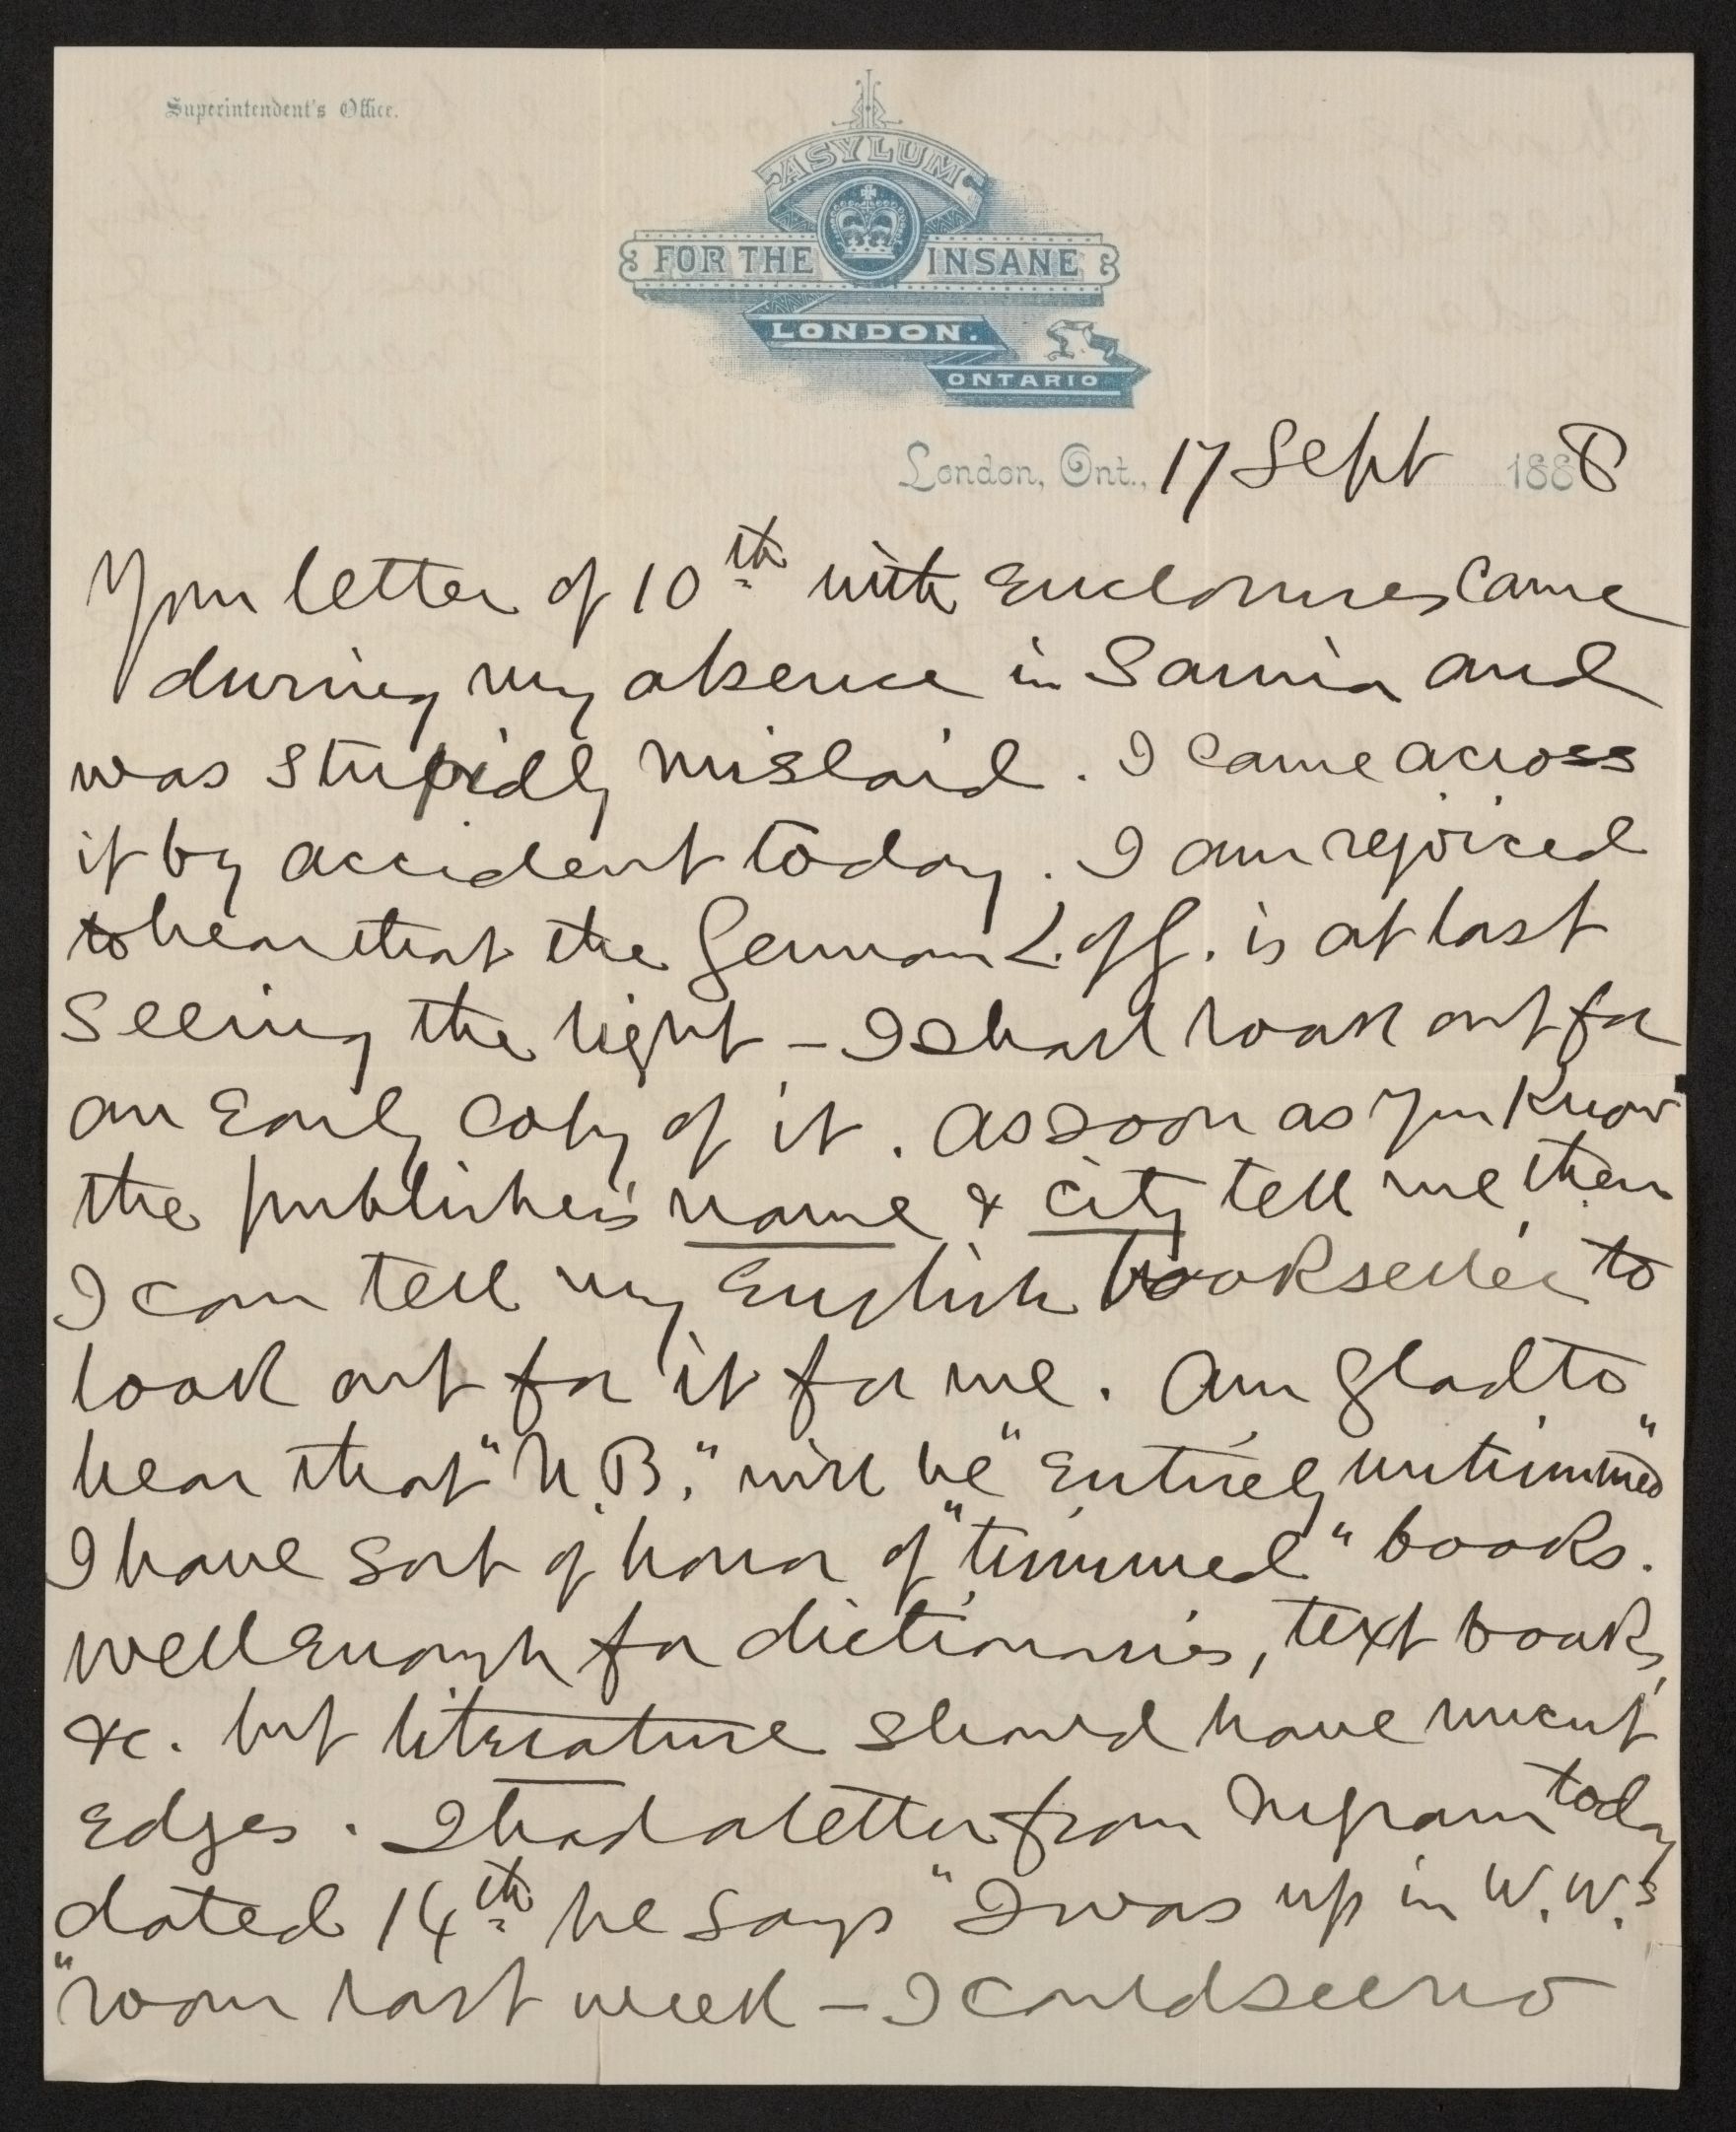 Superintendent's Office.
ASYLUM
FOR THE INSANE
LONDON.
ONTARIO
London, Ont., 17 Sept 1888
Your letter of 10th with enclosures came
during my absence in Sarnia and
was stupidly mislaid. I came across
it by accident today. I am rejoiced
to hear that the German L. of G. is at last
seeing the light — I shall look out for
an early copy of it. As soon as you know
the publisher's name & city tell me then
I can tell my English bookseller to
look out for it for me. Am glad to
hear that "N.B." will be "entirely untrimmed"
I have sort of horror of "trimmed" books.
well enough for dictionaries, text books,
&c. but literature should have uncut
edges. I had a letter from Ingram today
dated 14th he says "I was up in W.W.'s
"room last week — I could see no